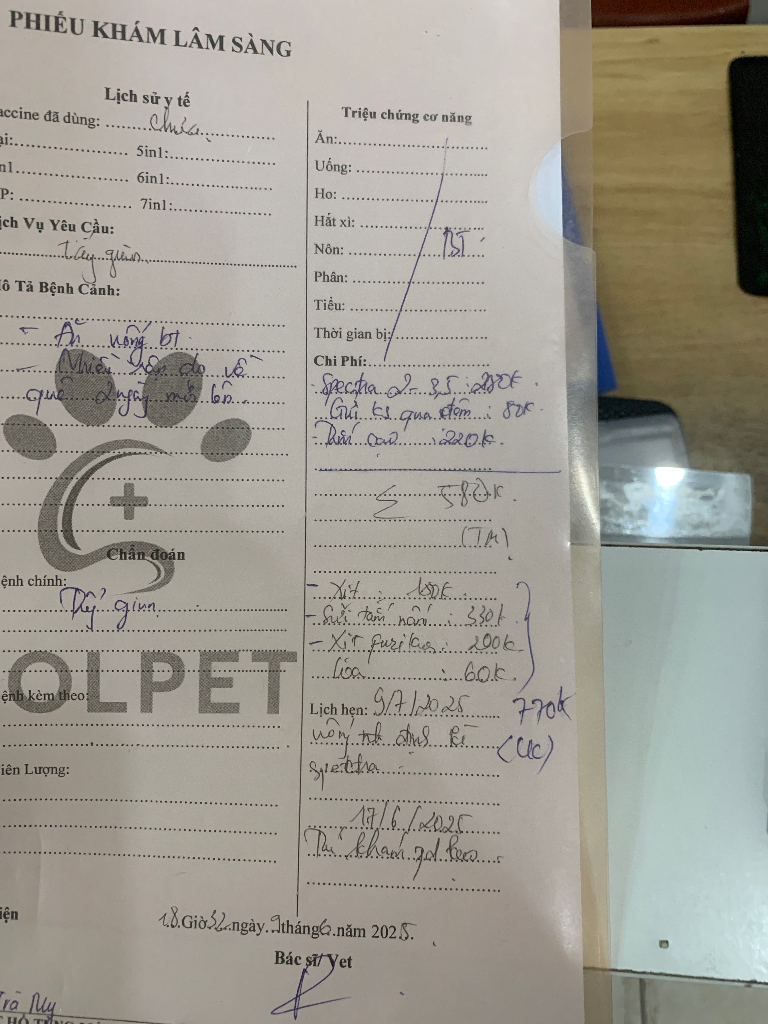 PHIẾU KHÁM LÂM SÀNG
Lịch sử y tế
accine đã dùng: chưa
ại:
5in1:
n1
6in1:
P:
7in1:
ịch Vụ Yêu Cầu:
Tẩy giun
ô Tả Bệnh Cảnh:
- Ăn uống bt
- Nhiều rận do về
quê 2 ngày mới lên
Chẩn đoán
ệnh chính:
Tẩy giun
OLPET
ệnh kèm theo:
iên Lượng:
Triệu chứng cơ năng
Ăn:
Uống:
Ho:
Hắt xì:
Nôn: BT
Phân:
Tiểu:
Thời gian bị:
Chi Phí:
- Spectra 2-3,5 : 280k.
- Gửi ks qua đêm : 80k.
: 220k.
Σ 580k.
(TM)
- Xịt :
- Sữi tắm nấm : 330k
- Xịt : 200k
Lóa : 60k.
770k
(CK)
Lịch hẹn: 9/7/2025
uống
spectra
17/6/2025
Tái khám
iện
18 Giờ 32 ngày 9 tháng 6 năm 2025.
Bác sĩ/ Vet
Trà My